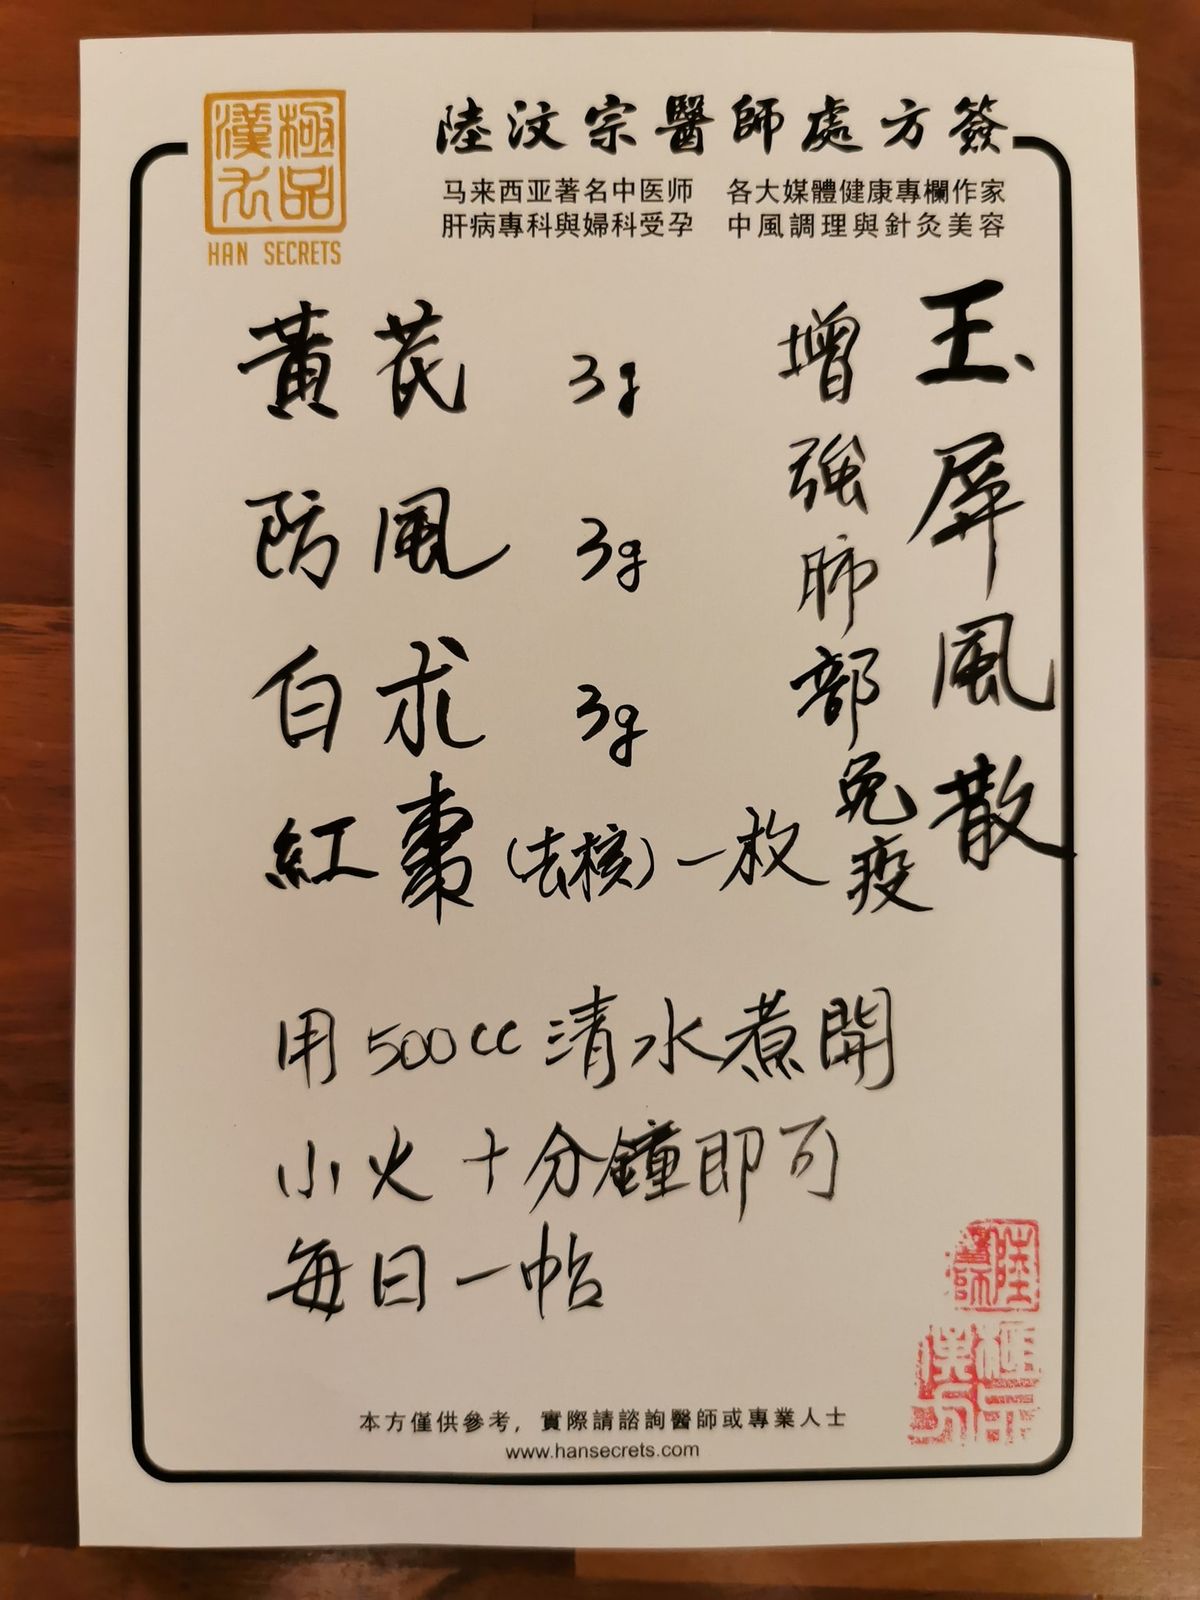 極品漢方
HAN SECRETS
陸汶宗醫師處方簽
马来西亚著名中医师 各大媒體健康專欄作家
肝病專科與婦科受孕 中風調理與針灸美容
玉屏風散
增強肺部免疫
黃芪 3g
防風 3g
白朮 3g
紅棗(去核)一枚
用500cc清水煮開
小火十分鐘即可
每日一帖
陸醫師
極品漢方
本方僅供參考，實際請諮詢醫師或專業人士
www.hansecrets.com